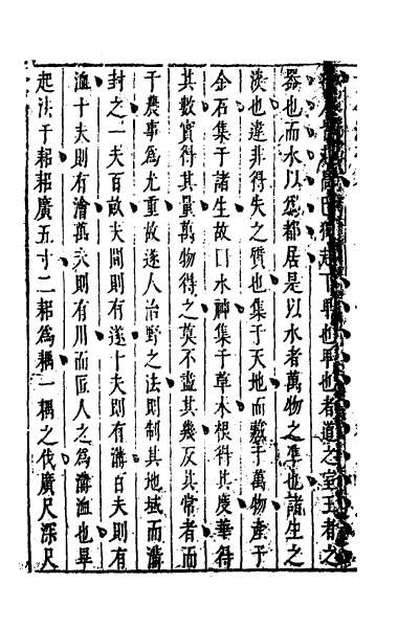 也準也者道之室王者之
器也而水以爲都居是以水者萬物之準也諸生之
淡也違非得失之質也集于天地而藏于萬物產于
金石集于諸生故曰水神集于草木根得其度華得
其數實得其量萬物得之莫不盡其幾反其常者而
于農事爲尤重故遂人治野之法則制其地域而溝
封之一夫百畝夫間則有遂十夫則有溝百夫則有
洫十夫則有澮萬夫則有川而匠人之爲溝洫也畢
起法于耜耜廣五寸二耜爲耦一耦之伐廣尺深尺